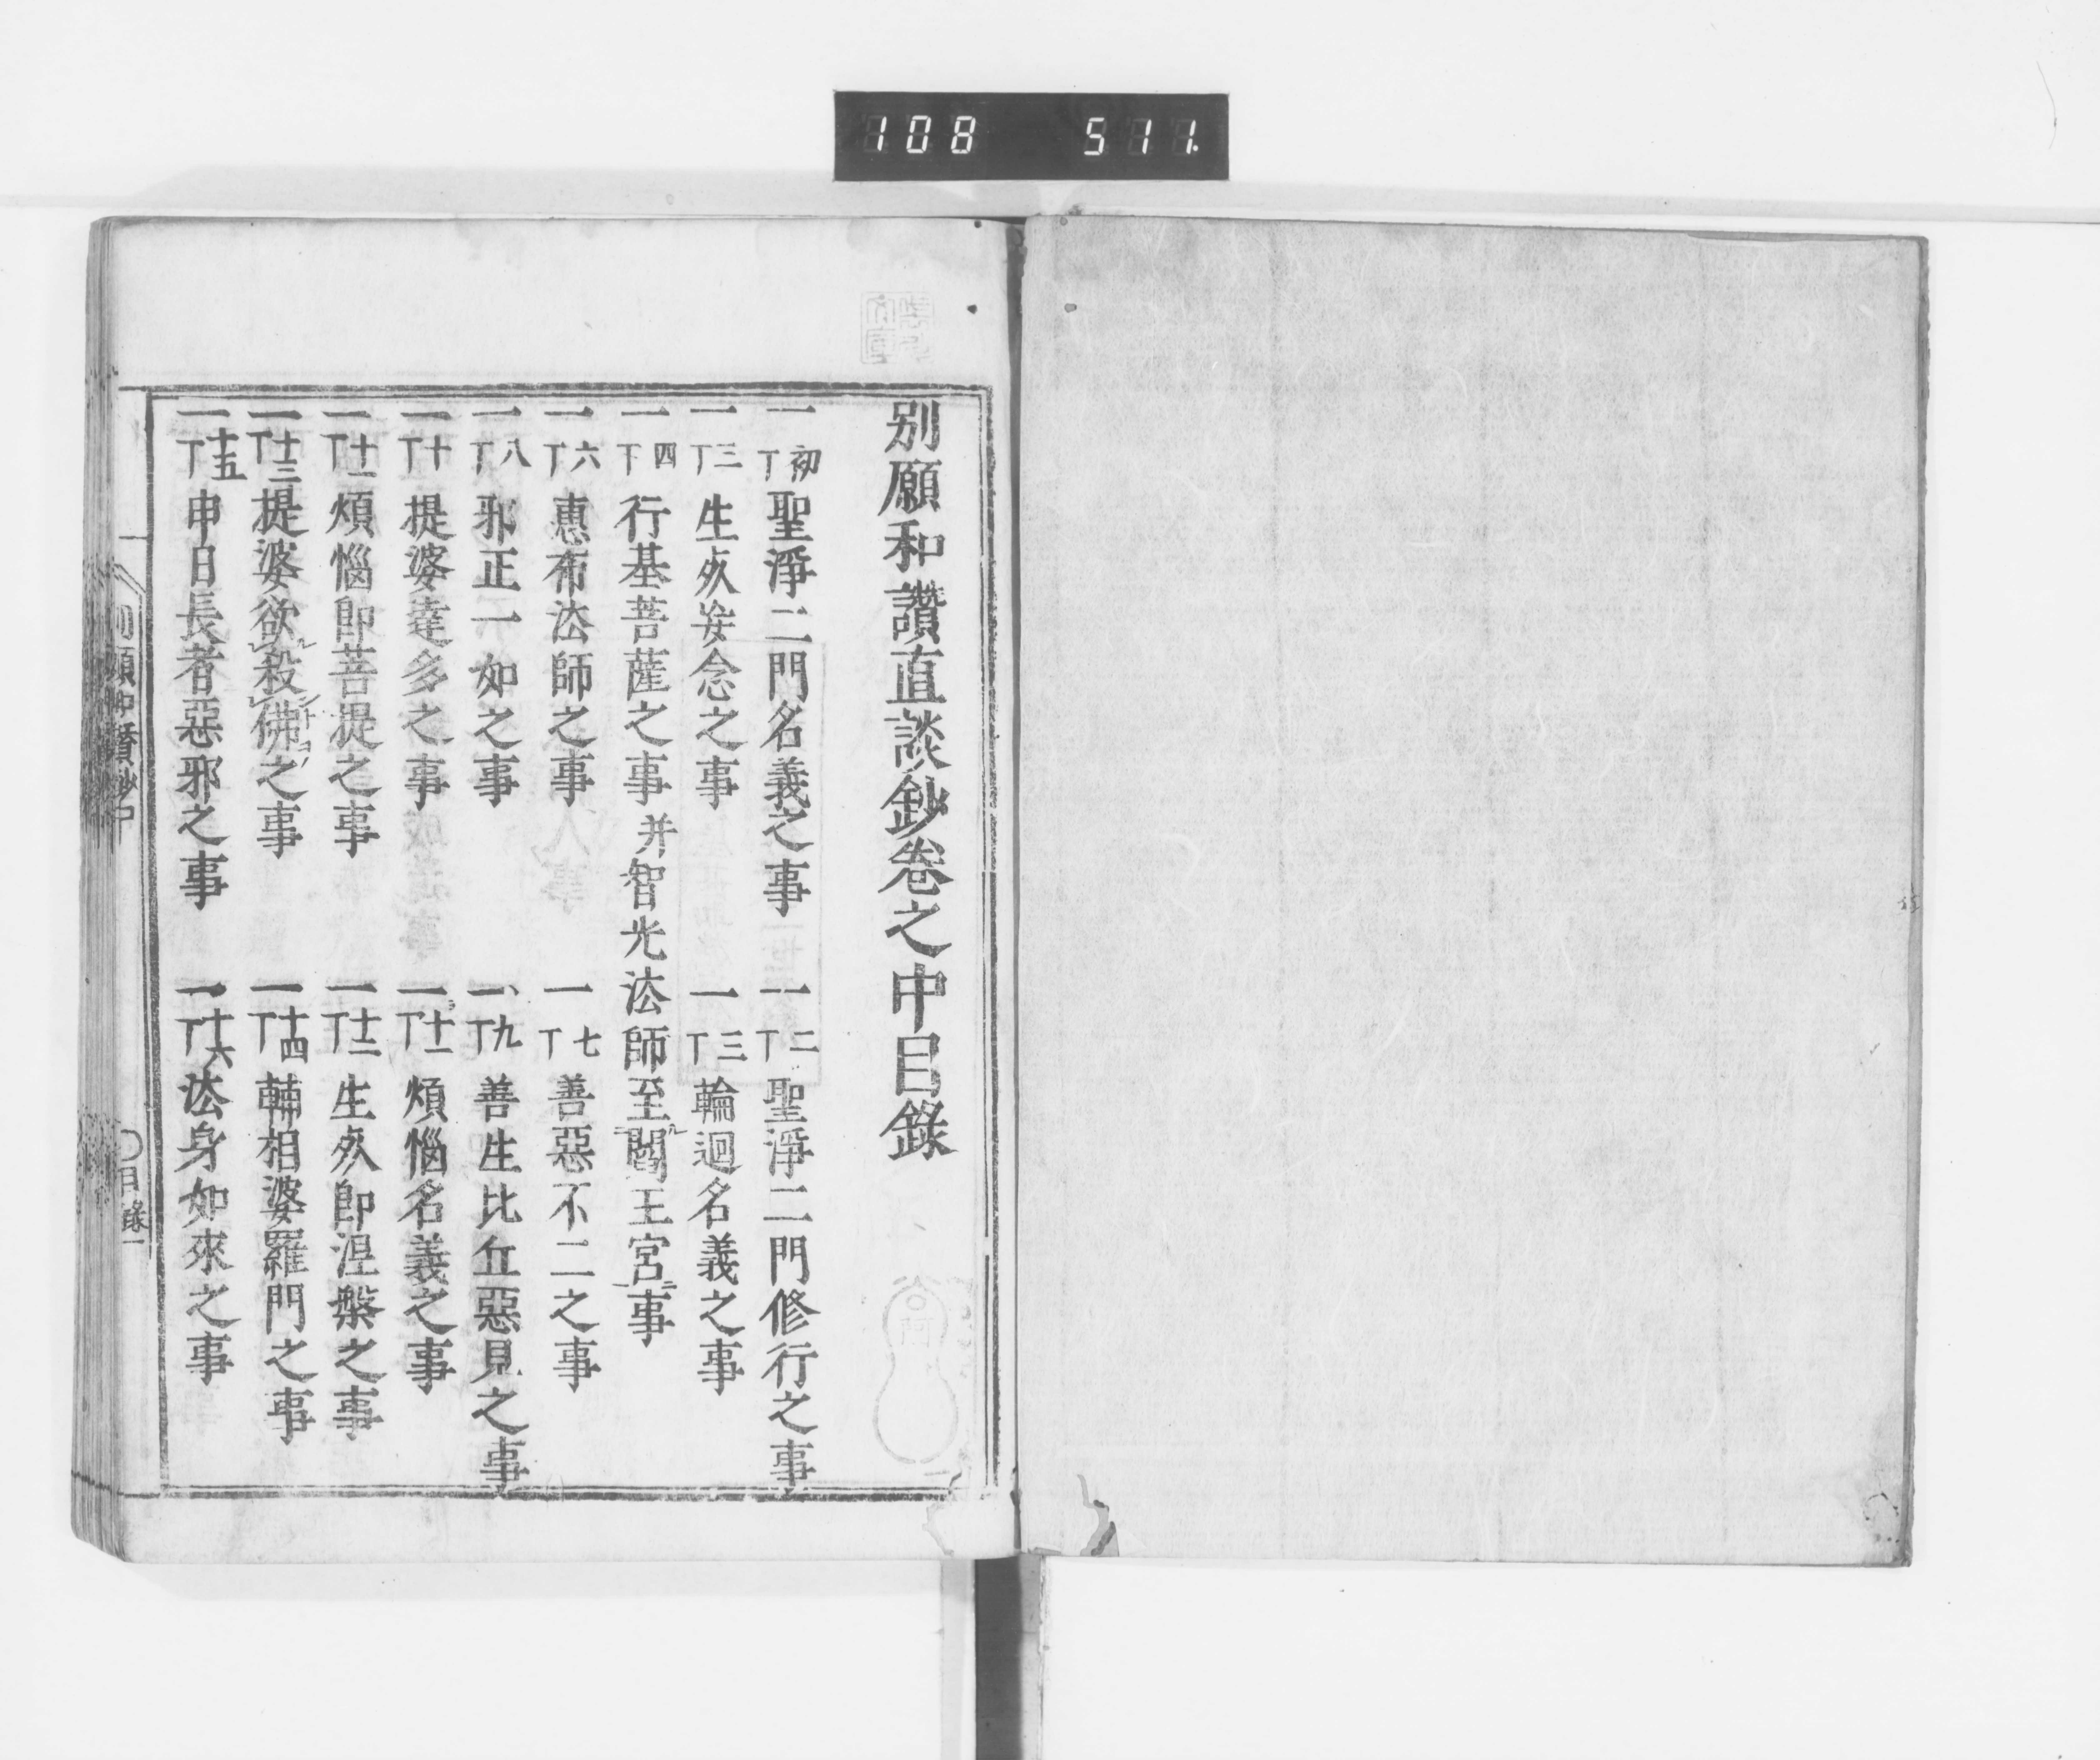 108 511.
別願和讚直談鈔卷之中目錄
一初丁聖淨二門名義之事 一二丁聖淨二門修行之事
一三丁生死妄念之事 一三丁輪迴名義之事
一四丁行基菩薩之事并智光法師至閻王宮事
一六丁惠布法師之事 一七丁善惡不二之事
一八丁邪正一如之事 一九丁善生比丘惡見之事
一十丁提婆達多之事 一十一丁煩惱名義之事
一十一丁煩惱即菩提之事 一十二丁生死即涅槃之事
一十三丁提婆欲殺佛之事 一十四丁輔相婆羅門之事
一十五丁申日長者惡邪之事 一十六丁法身如來之事
願和讚鈔中 目錄一